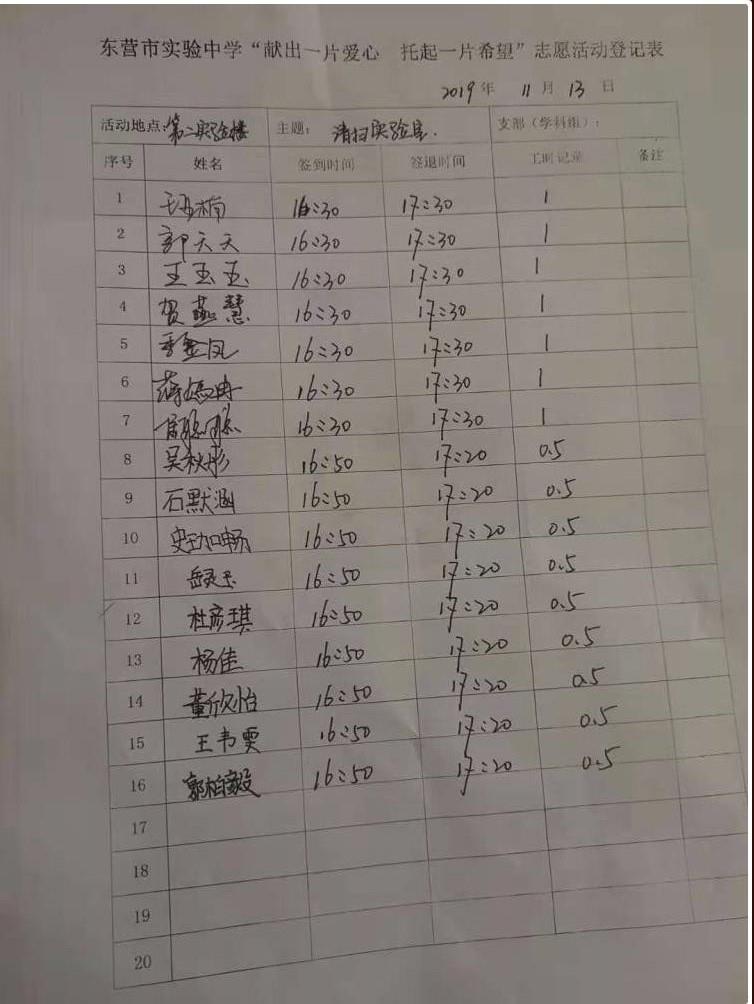 东营市实验中学“献出一片爱心 托起一片希望”志愿活动登记表
2019 年 11 月 13 日
活动地点:第二实验楼 主题: 清扫实验室. 支部(学科组):
序号 姓名 签到时间 签退时间 工时记录 备注
1 楠 16:30 17:30 1
2 郭天天 16:30 17:30 1
3 王玉玉 16:30 17:30 1
4 贺燕慧 16:30 17:30 1
5 季金凤 16:30 17:30 1
6 蒋 冉 16:30 17:30 1
7 16:30 17:30 1
8 吴秋彤 16:50 17:20 0.5
9 石默涵 16:50 17:20 0.5
10 史 畅 16:50 17:20 0.5
11 岳灵玉 16:50 17:20 0.5
12 杜彦琪 16:50 17:20 0.5
13 杨佳 16:50 17:20 0.5
14 董欣怡 16:50 17:20 0.5
15 王韦雯 16:50 17:20 0.5
16 郭柏毅 16:50 17:20 0.5
17
18
19
20